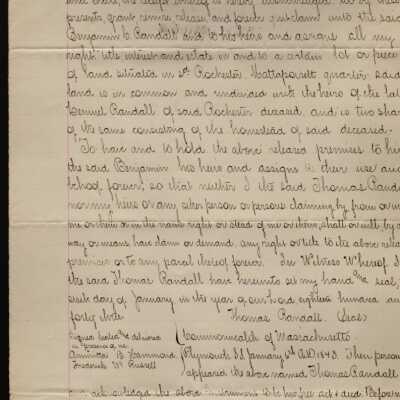 presents, grant remise, release, and forever quitclaim unto the said
Benjamin C. Randall his heirs and assigns all my
right title, interest and estate in and to a certain lot or piece
of land situated in sd. Rochester, Mattapoisett quarter, said
land is in common and undivided with the heirs of the late
Lemuel Randall of said Rochester deceased, and is two shar
of the same consisting of the homestead of said deceased.
To have and to hold the above released premises to hi
the said Benjamin his heirs and assigns to their use and
behoof forever; so that neither I the said Thomas Randa
nor my heirs or any other person or persons claiming by from or un
me or them or in the name right or stead of me or them, shall or will by a
way or means have claim or demand, any right or title to the above relea
premises or to any parcel thereof forever. In Witness Whereof, I
the said Thomas Randall have hereunto set my hand and seal,
sixth day of January in the year of our Lord eighteen hundred and
forty three. Thomas Randall. (Seal)
Signed sealed and delivered
in presence of us.
Amittai B. Hammond
Frederick W. Russell
Commonwealth of Massachusetts
Plymouth, SS January 6th A.D. 1843. Then person
appeared the above named Thomas Randall
acknowledged the above instrument to be his free act & deed, Before